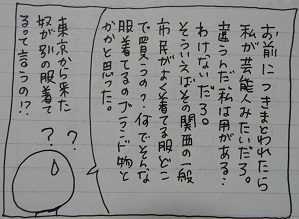 お前につきまとわれたら
私が芸能人みたいだろ。
違うんだ。私は用がある!
わけないだろ。
そういえばその関西の一般
市民がよく着てる服どこ
で買うの?何でそんな
服着てるのブランド物と
かかと思った。
東京から来た
奴が別の服着て
るって言うの!?
? ?